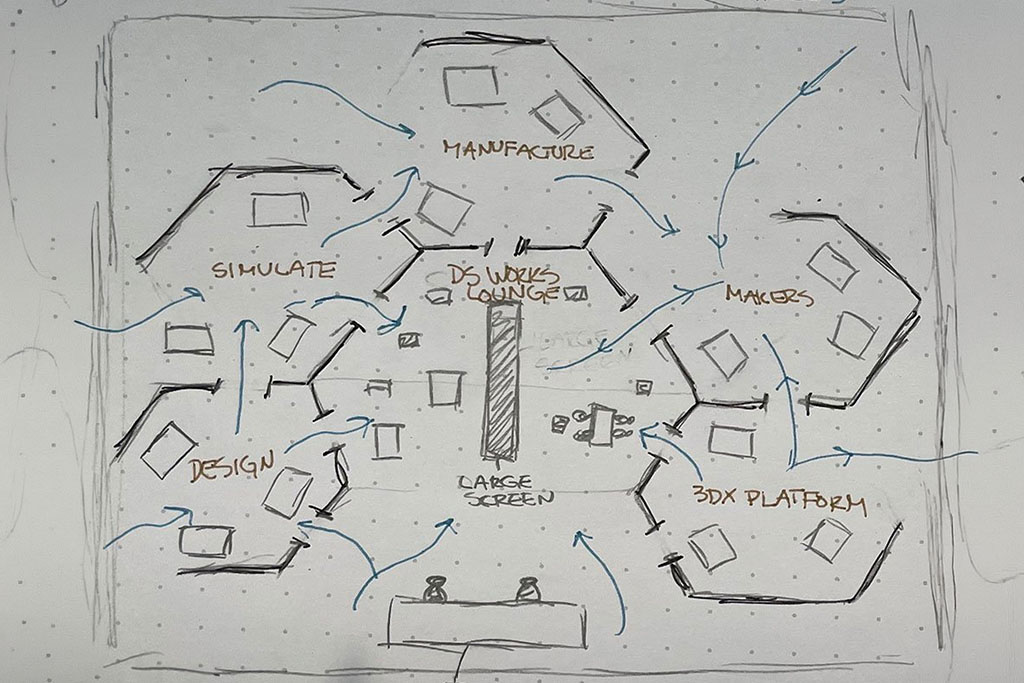 MANUFACTURE
SIMULATE
DS WORKS
LOUNGE
MAKERS
LARGE
SCREEN
DESIGN
LARGE
SCREEN
3DX PLATFORM